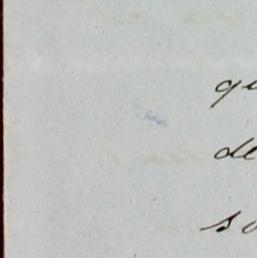 qu
de
so